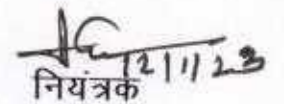 12/1/23
नियंत्रक